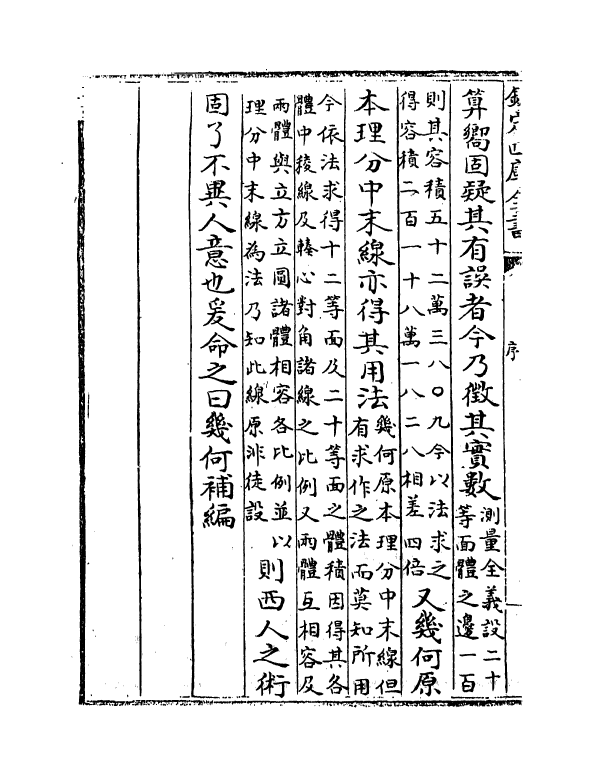 欽定四庫全書
序
算嚮固疑其有誤者今乃徵其實數
測量全義設二十
等面體之邊一百
則其容積五十二萬三八〇九今以法求之
得容積二百一十八萬一八二八相差四倍
又幾何原
本理分中末線亦得其用法
幾何原本理分中末線但
有求作之法而莫知所用
今依法求得十二等面及二十等面之體積因得其各
體中稜線及轃心對角諸線之比例又兩體互相容及
兩體與立方立圓諸體相容各比例並以
理分中末線為法乃知此線原非徒設
則西人之術
固了不異人意也爰命之曰幾何補編